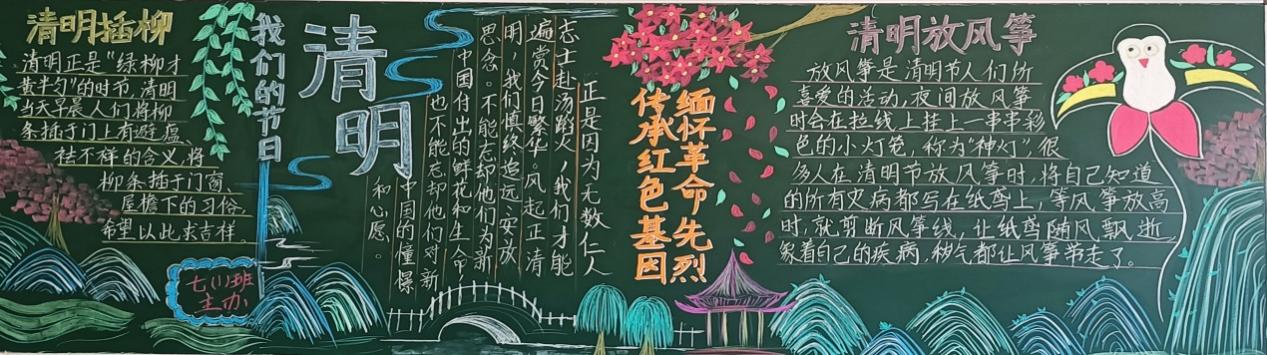 清明插柳
清明正是“绿柳才
黄半匀”的时节,清明
当天早晨人们将柳
条插于门上有避
祛不祥的含义,将
柳条插于门窗、
屋檐下的习俗,
希望以此求吉祥。
七(1)班
主办
我们的节日
清明
正是因为无数仁人
志士赴汤蹈火,我们才能
遍赏今日繁华。风起正清
明,我们慎终追远,安放
思念。不能忘却他们为新
中国付出的鲜花和生命
也不能忘却他们对新
中国的憧憬
和心愿。
缅怀革命先烈
传承红色基因
清明放风筝
放风筝是清明节人们所
喜爱的活动,夜间放风筝
时会在拉线上挂上一串串彩
色的小灯笼,称为“神灯”很
多人在清明节放风筝时,将自己知道
的所有灾病都写在纸鸢上,等风筝放高
时,就剪断风筝线,让纸鸢随风飘逝,
象着自己的疾病,秽气都让风筝带走了。